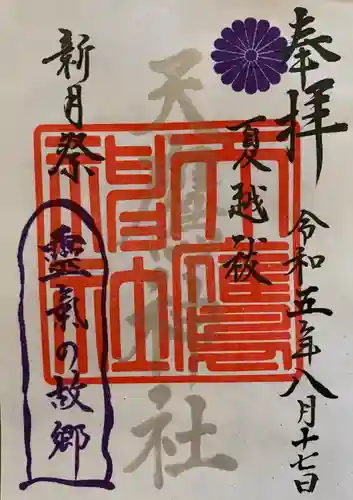 奉拝
令和五年八月十七日
夏越祓
天鷹神社
新月祭
靈氣の故郷
天鷹神社